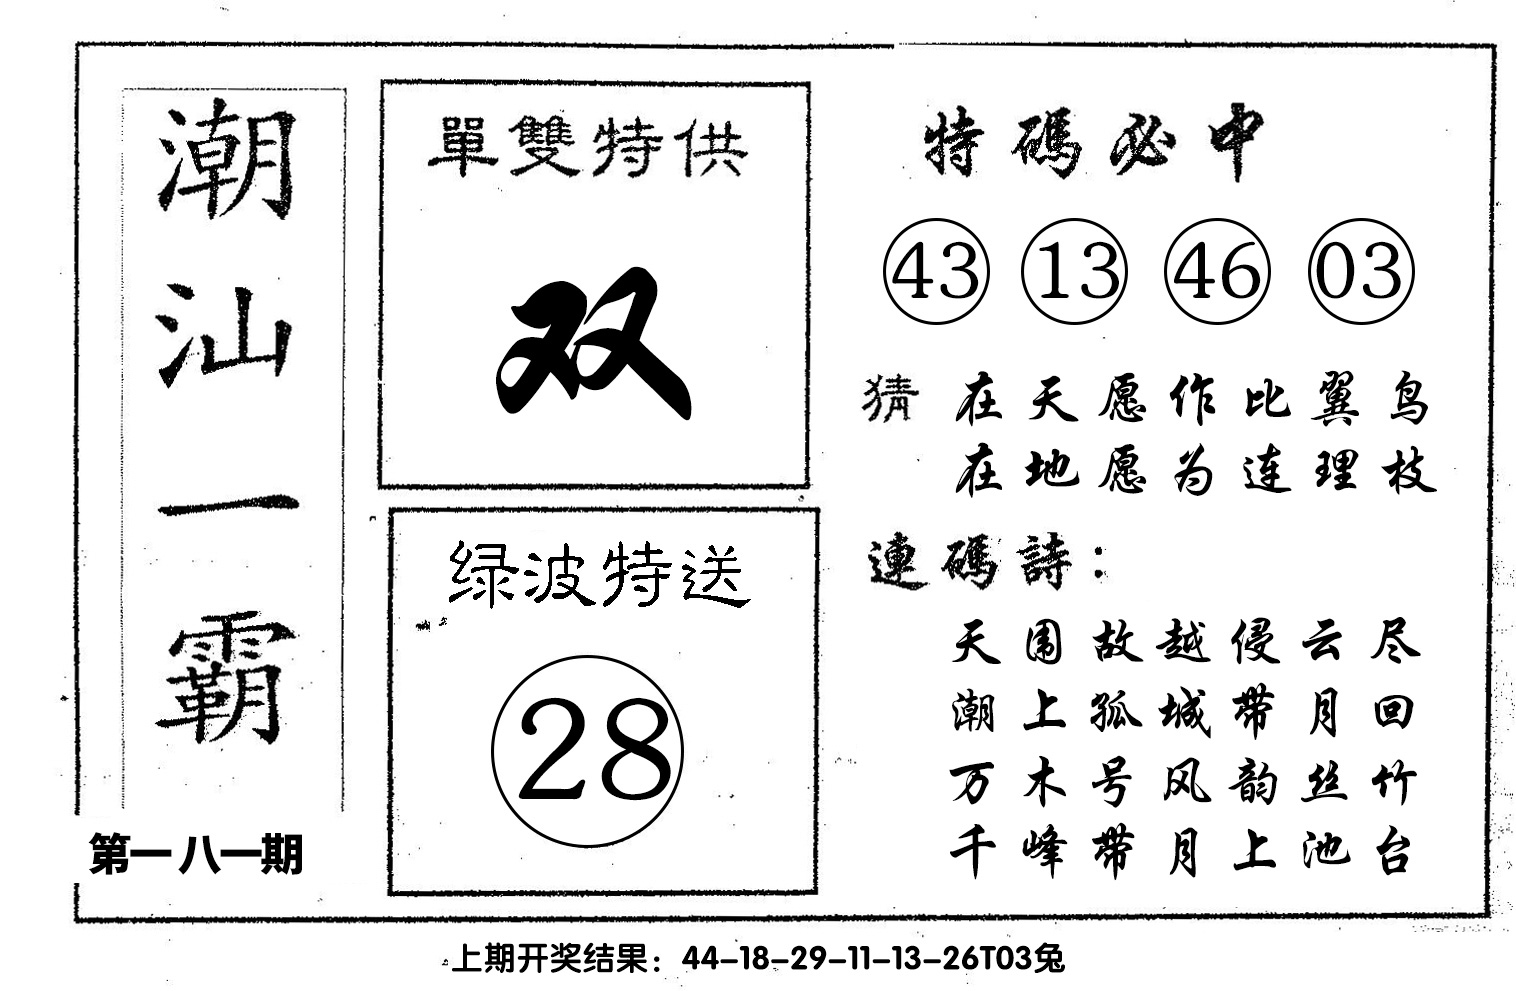 潮汕一霸
第一八一期
單雙特供
双
绿波特送
28
特碼必中
43 13 46 03
猜 在天愿作比翼鸟
在地愿为连理枝
連碼詩：
天围故越侵云尽
潮上孤城带月回
万木号风韵丝竹
千峰带月上池台
上期开奖结果：44-18-29-11-13-26T03兔